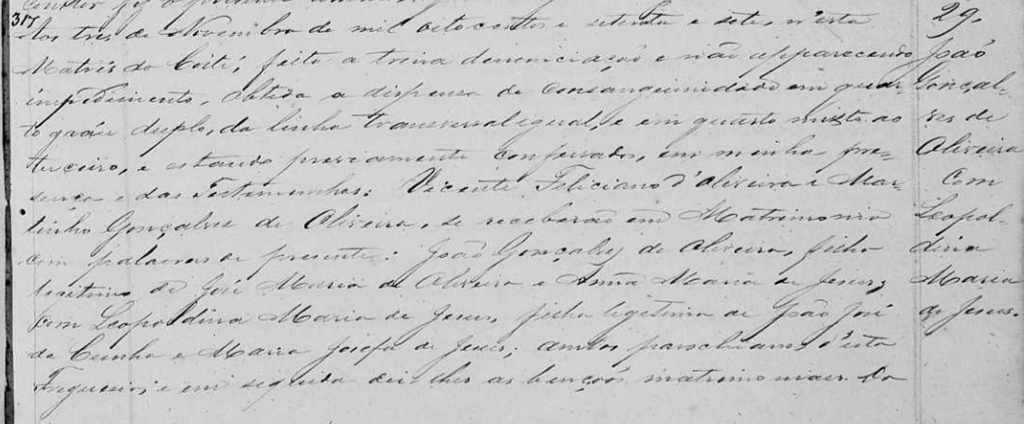 317
Aos tres de Novembro de mil oitocentos e setenta e sete, n'esta
Matris do Coité, feita a trina denunciação e não apparecendo
impedimento, obtida a dispensa de consanguinidade em quar-
to gráo duplo, da linha transversal igual, e em quarto mixto ao
terceiro, e estando previamente confessados, em minha pre-
sença e das Testemunhas: Vicente Feliciano d'Oliveira e Mar-
tinho Gonçalves de Oliveira, se receberão em Matrimonio
com palavras de presente: João Gonçalves de Oliveira, filho
legitimo de José Maria de Oliveira e Anna Maria de Jesus;
com Leopoldina Maria de Jesus, filha legitima de João José
da Cunha e Maria Josefa de Jesus; ambos parochianos d'esta
Freguesia; e em seguida dei-lhes as bençãos matrimoniaes. Do
29.
João
Gonçal-
ves de
Oliveira
Com
Leopol-
dina
Maria
de Jesus.